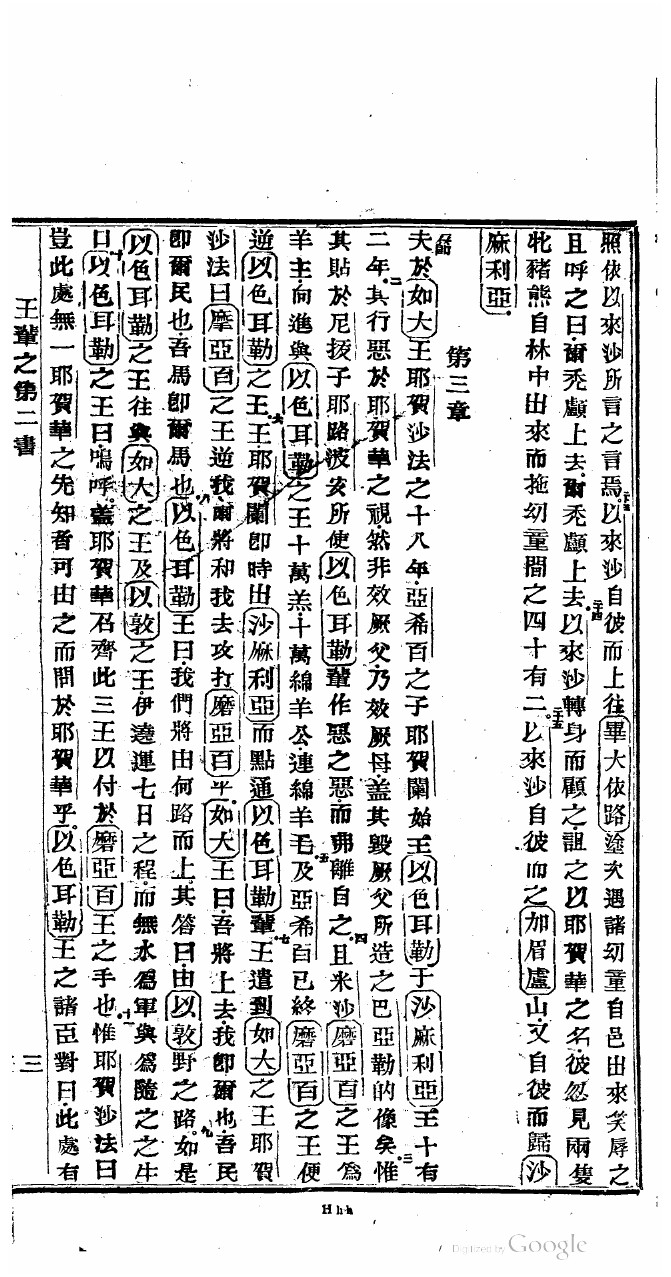 照依以來沙所言之言焉。二十三以來沙自彼而上往畢大依路塗次遇諸幼童自邑出來笑辱之
且呼之曰爾禿顱上去爾禿顱上去二十四以來沙轉身而顧之詛之以耶賀華之名彼忽見兩隻
牝豬熊自林中出來而拖幼童間之四十有二。二十五以來沙自彼而之加眉盧山又自彼而歸沙
麻利亞。
第三章
夫於如大王耶賀沙法之十八年亞希百之子耶賀闌始王以色耳勒于沙麻利亞王十有
二年。二其行惡於耶賀華之視然非效厥父乃效厥母蓋其毀厥父所造之巴亞勒的像矣三惟
其貼於尼拔子耶路波亥所使以色耳勒輩作惡之惡而弗離自之且四米沙磨亞百之王為
羊主向進與以色耳勒之王十萬羔十萬綿羊公連綿羊毛五及亞希百已終磨亞百之王便
逆以色耳勒之王六王耶賀闌即時出沙麻利亞而點通以色耳勒輩七王遣到如大之王耶賀
沙法曰摩亞百之王逆我爾將和我去攻打磨亞百乎如大王曰吾將上去我即爾也吾民
即爾民也吾馬即爾馬也八以色耳勒王曰我們將由何路而上其答曰由以敦野之路九如是
以色耳勒之王往與如大之王及以敦之王伊遶運七日之程而無水為軍與為隨之之牛
十曰以色耳勒之王曰嗚呼蓋耶賀華召齊此三王以付於磨亞百王之手也十一惟耶賀沙法曰
豈此處無一耶賀華之先知者可由之而問於耶賀華乎以色耳勒王之諸臣對曰此處有
王輩之第二書
三
Hhh
Digitized by Google